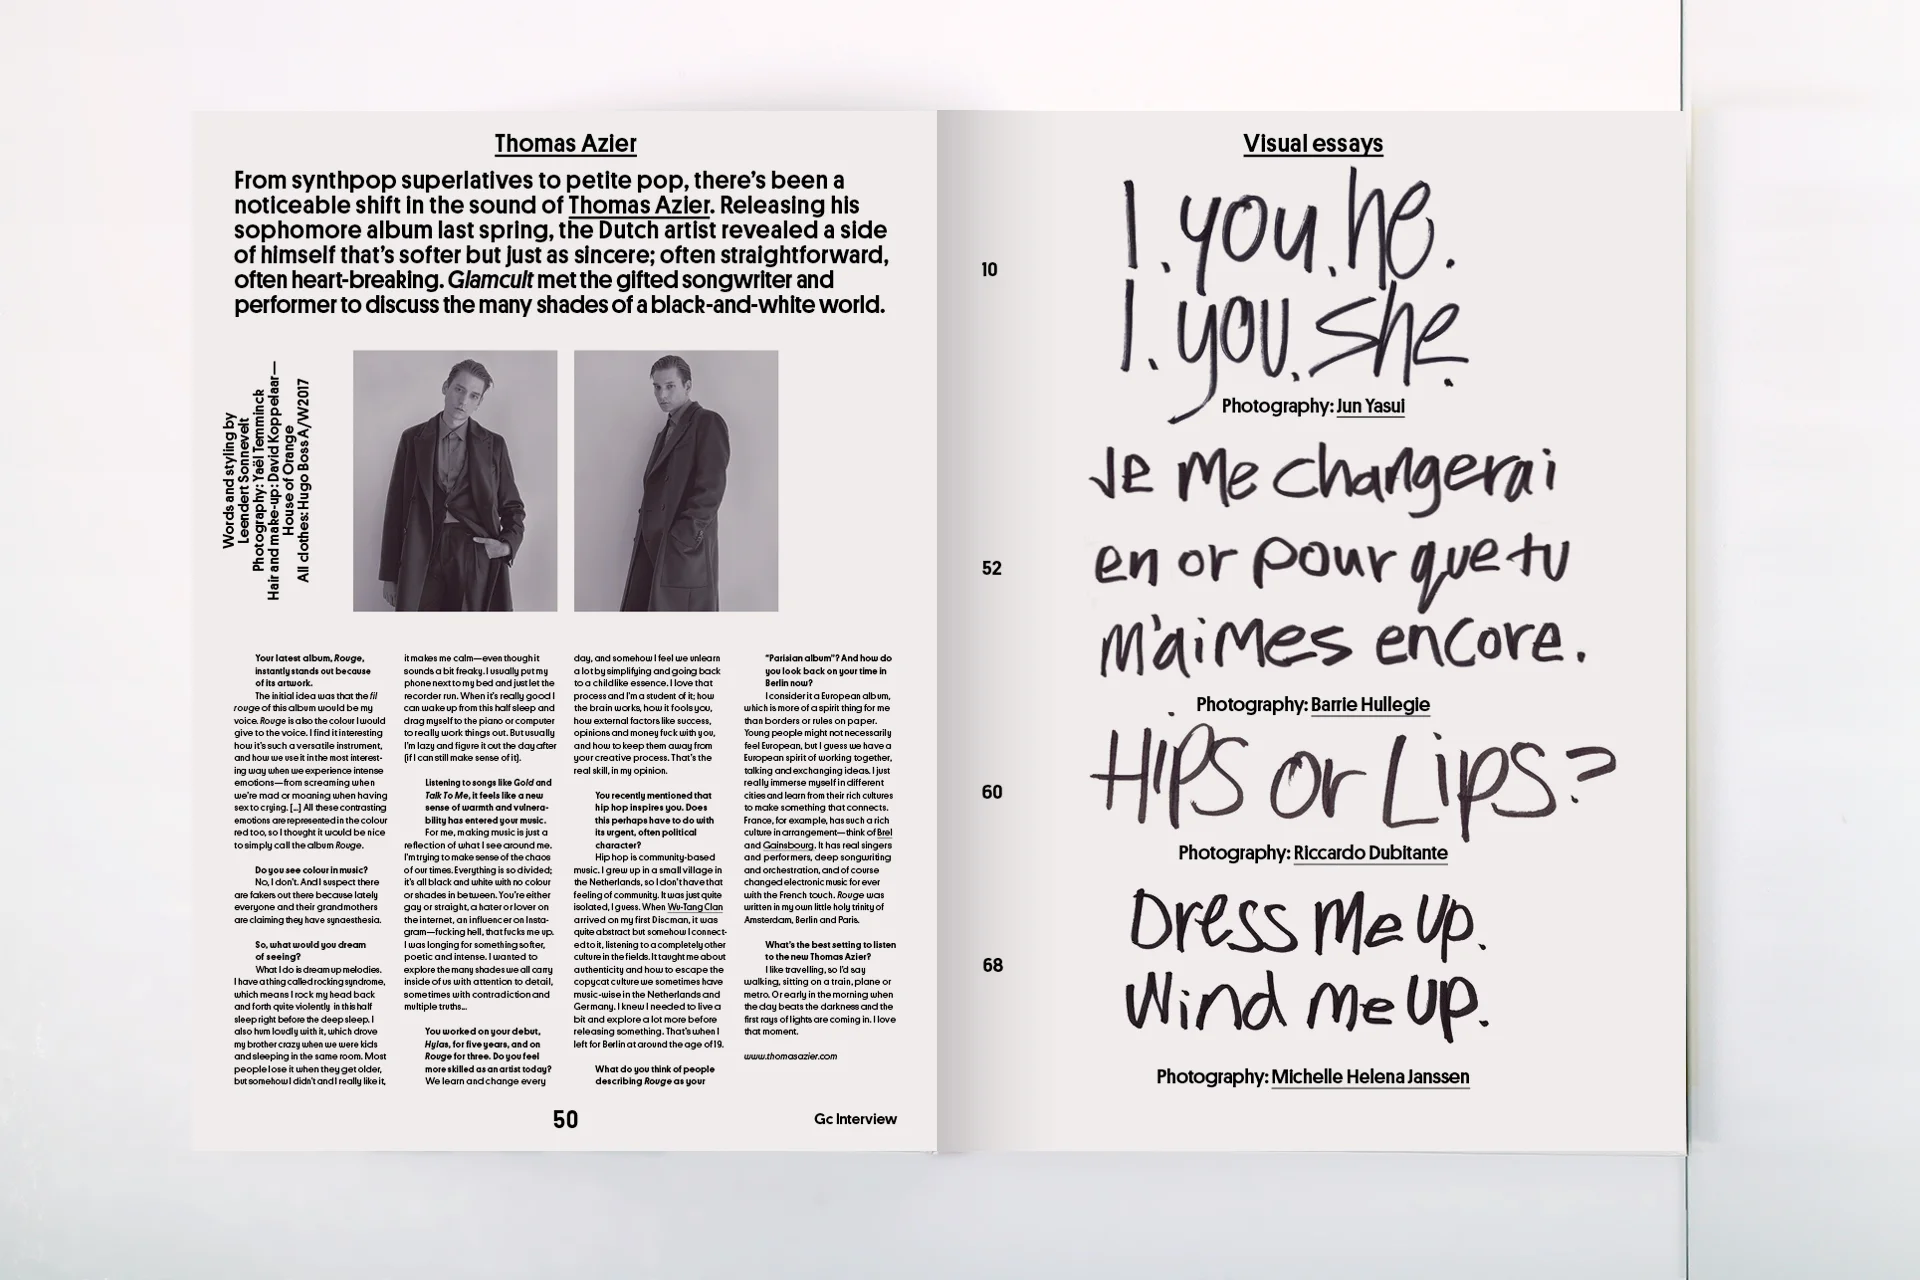 Thomas Azier
From synthpop superlatives to petite pop, there's been a
noticeable shift in the sound of Thomas Azier. Releasing his
sophomore album last spring, the Dutch artist revealed a side
of himself that's softer but just as sincere; often straightforward,
often heart-breaking. Glamcult met the gifted songwriter and
performer to discuss the many shades of a black-and-white world.
Words and styling by
Leendert Sonnevelt
Photography: Yaël Temminck
Hair and make-up: David Koppelaar—
House of Orange
All clothes: Hugo Boss A/W2017
Your latest album, Rouge,
instantly stands out because
of its artwork.
The initial idea was that the fil
rouge of this album would be my
voice. Rouge is also the colour I would
give to the voice. I find it interesting
how it's such a versatile instrument,
and how we use it in the most interest-
ing way when we experience intense
emotions—from screaming when
we're mad or moaning when having
sex to crying. [...] All these contrasting
emotions are represented in the colour
red too, so I thought it would be nice
to simply call the album Rouge.
Do you see colour in music?
No, I don't. And I suspect there
are fakers out there because lately
everyone and their grandmothers
are claiming they have synaesthesia.
So, what would you dream
of seeing?
What I do is dream up melodies.
I have a thing called rocking syndrome,
which means I rock my head back
and forth quite violently in this half
sleep right before the deep sleep. I
also hum loudly with it, which drove
my brother crazy when we were kids
and sleeping in the same room. Most
people lose it when they get older,
but somehow I didn't and I really like it,
it makes me calm—even though it
sounds a bit freaky. I usually put my
phone next to my bed and just let the
recorder run. When it's really good I
can wake up from this half sleep and
drag myself to the piano or computer
to really work things out. But usually
I'm lazy and figure it out the day after
(if I can still make sense of it).
Listening to songs like Gold and
Talk To Me, it feels like a new
sense of warmth and vulnera-
bility has entered your music.
For me, making music is just a
reflection of what I see around me.
I'm trying to make sense of the chaos
of our times. Everything is so divided;
it's all black and white with no colour
or shades in between. You're either
gay or straight, a hater or lover on
the internet, an influencer on Insta-
gram—fucking hell, that fucks me up.
I was longing for something softer,
poetic and intense. I wanted to
explore the many shades we all carry
inside of us with attention to detail,
sometimes with contradiction and
multiple truths...
You worked on your debut,
Hylas, for five years, and on
Rouge for three. Do you feel
more skilled as an artist today?
We learn and change every
day, and somehow I feel we unlearn
a lot by simplifying and going back
to a childlike essence. I love that
process and I'm a student of it; how
the brain works, how it fools you,
how external factors like success,
opinions and money fuck with you,
and how to keep them away from
your creative process. That's the
real skill, in my opinion.
You recently mentioned that
hip hop inspires you. Does
this perhaps have to do with
its urgent, often political
character?
Hip hop is community-based
music. I grew up in a small village in
the Netherlands, so I don't have that
feeling of community. It was just quite
isolated, I guess. When Wu-Tang Clan
arrived on my first Discman, it was
quite abstract but somehow I connect-
ed to it, listening to a completely other
culture in the fields. It taught me about
authenticity and how to escape the
copycat culture we sometimes have
music-wise in the Netherlands and
Germany. I knew I needed to live a
bit and explore a lot more before
releasing something. That's when I
left for Berlin at around the age of 19.
What do you think of people
describing Rouge as your
“Parisian album”? And how do
you look back on your time in
Berlin now?
I consider it a European album,
which is more of a spirit thing for me
than borders or rules on paper.
Young people might not necessarily
feel European, but I guess we have a
European spirit of working together,
talking and exchanging ideas. I just
really immerse myself in different
cities and learn from their rich cultures
to make something that connects.
France, for example, has such a rich
culture in arrangement—think of Brel
and Gainsbourg. It has real singers
and performers, deep songwriting
and orchestration, and of course
changed electronic music for ever
with the French touch. Rouge was
written in my own little holy trinity of
Amsterdam, Berlin and Paris.
What's the best setting to listen
to the new Thomas Azier?
I like travelling, so I'd say
walking, sitting on a train, plane or
metro. Or early in the morning when
the day beats the darkness and the
first rays of lights are coming in. I love
that moment.
www.thomasazier.com
50
Gc Interview
Visual essays
10
I. you. he.
I. you. she.
Photography: Jun Yasui
52
Je me changerai
en or pour que tu
m'aimes encore.
Photography: Barrie Hullegie
60
Hips or Lips?
Photography: Riccardo Dubitante
68
Dress me up.
Wind me up.
Photography: Michelle Helena Janssen